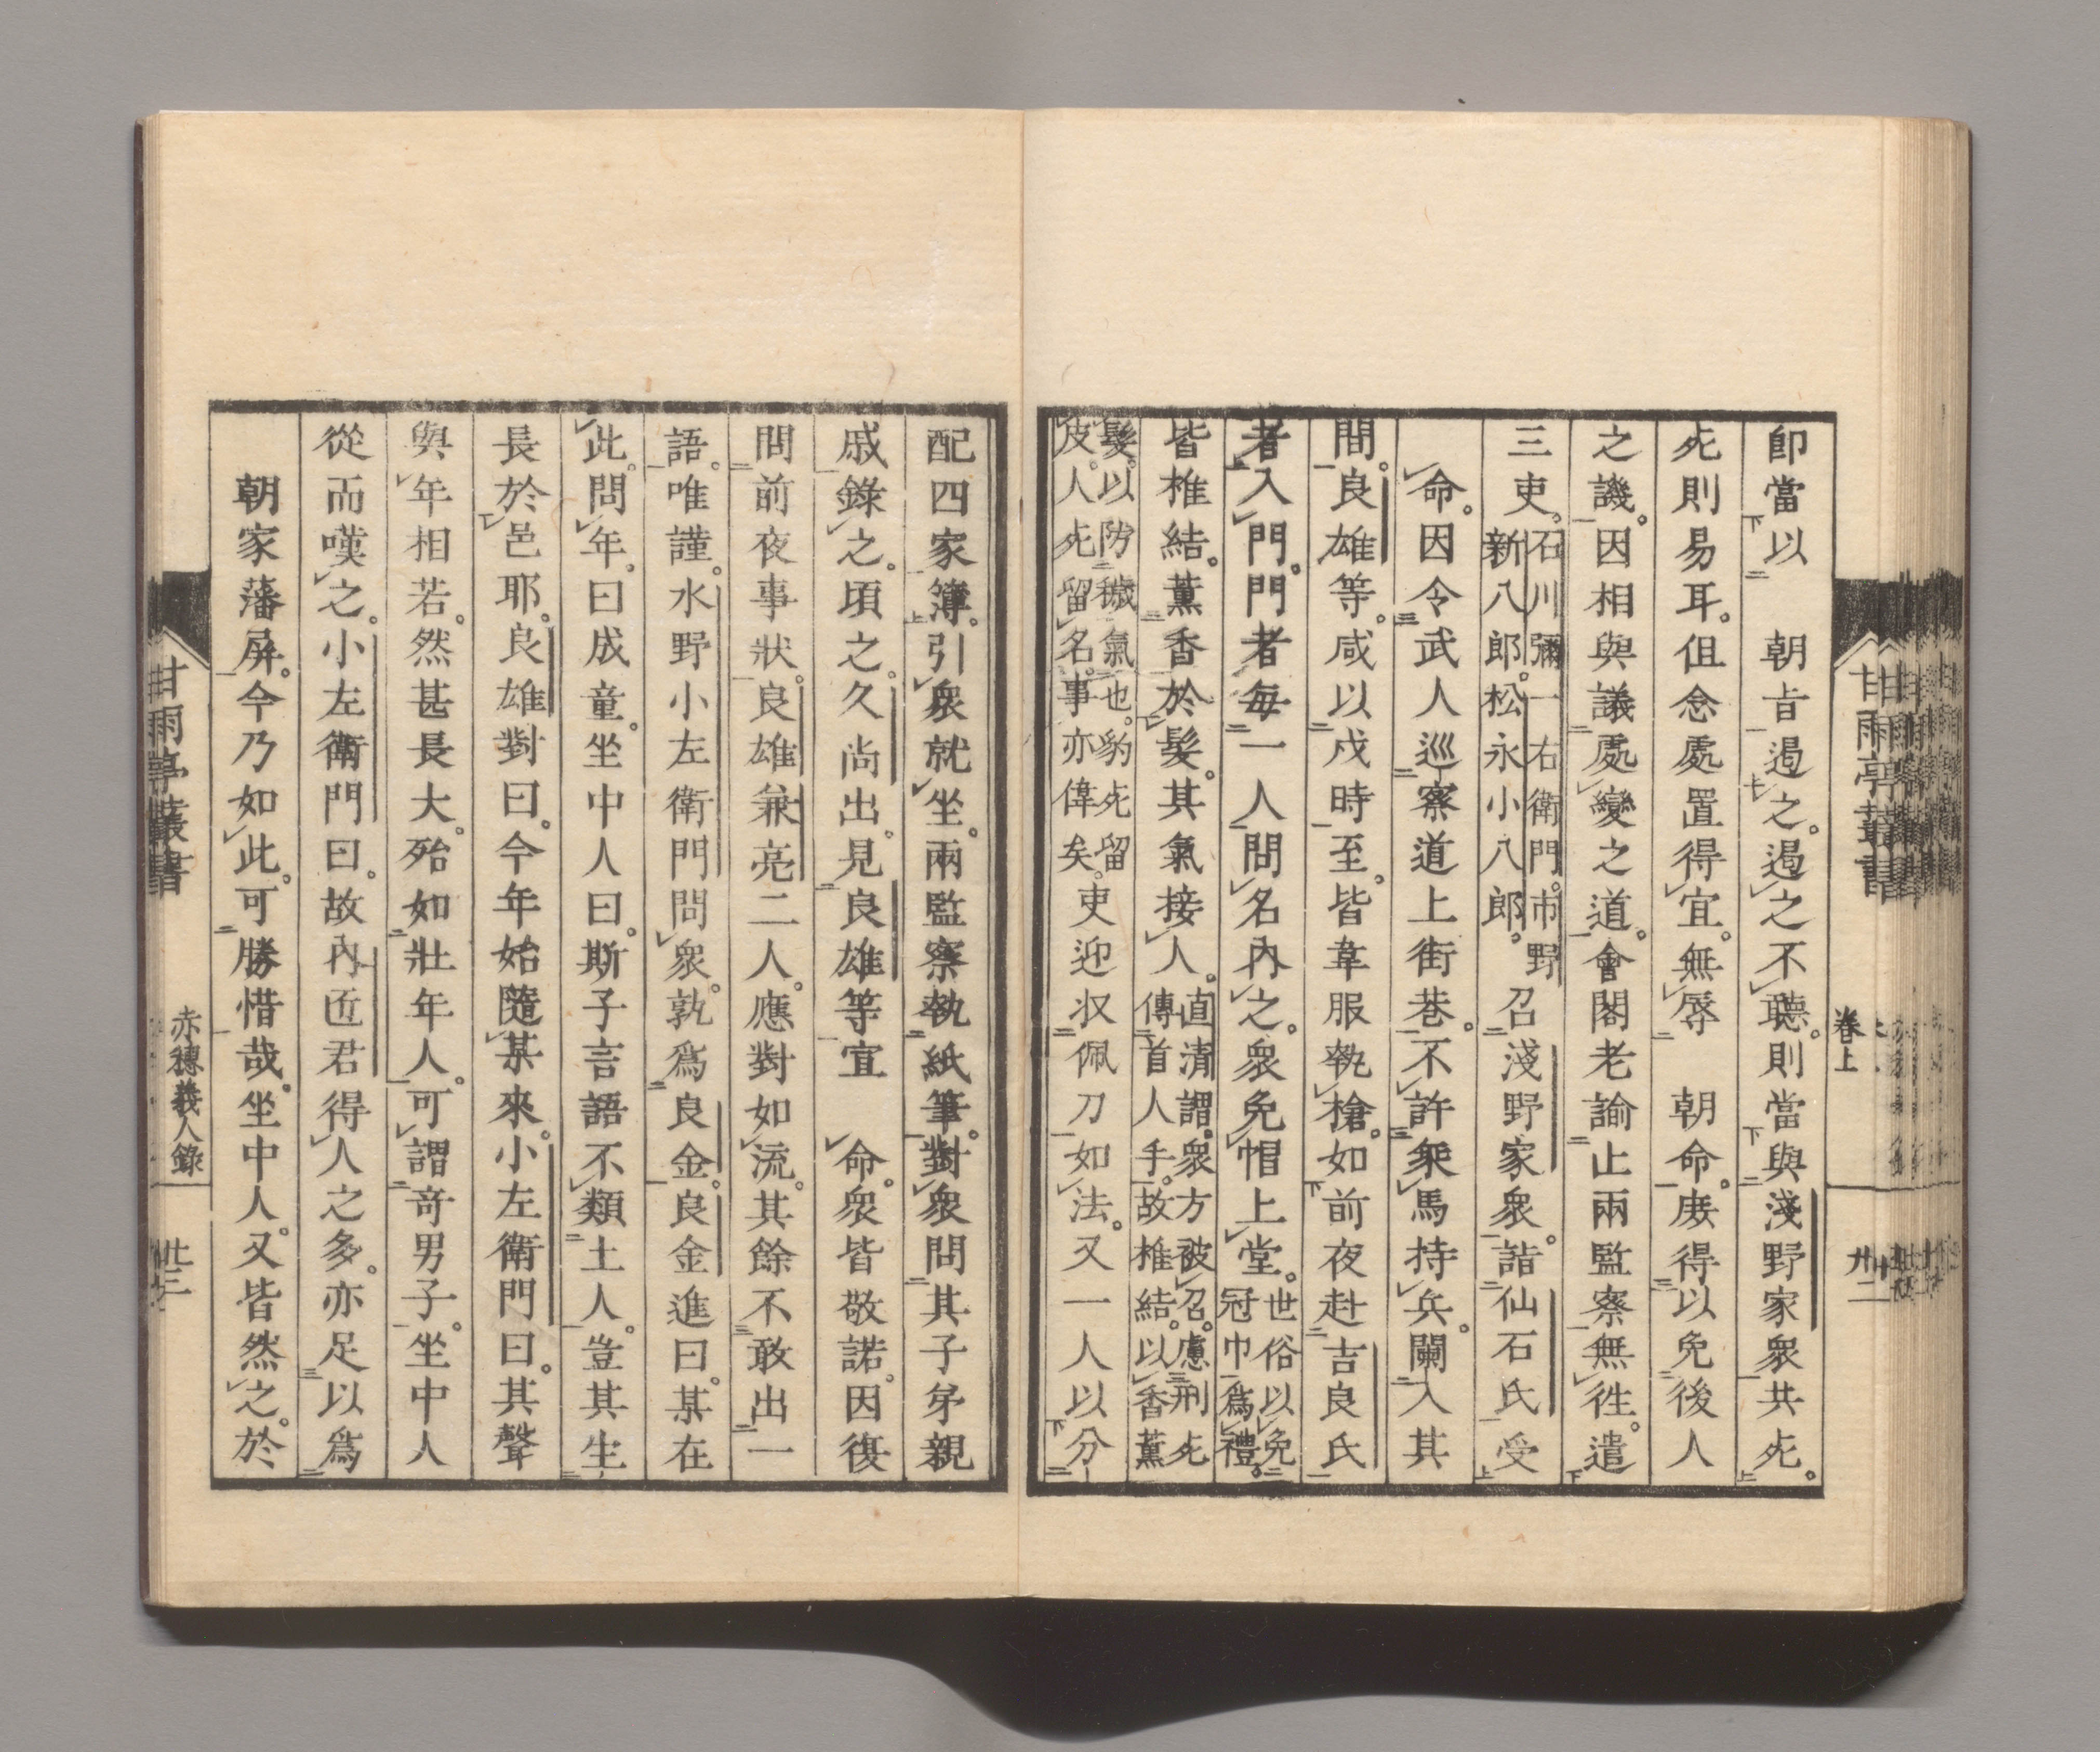 即當以　朝旨遏之。遏之不聽。則當與淺野家衆共死。
死則易耳。但念處置得宜。無辱　朝命。庶得以免後人
之譏。因相與議處變之道。會閣老諭止兩監察無徃。遣
三吏。石川彌一右衛門。市野
新八郎。松永小八郎。召淺野家衆。詣仙石氏受
命。因令武人巡察道上街巷。不許乘馬持兵。闌入其
間。良雄等。咸以戍時至。皆韋服執槍。如前夜赴吉良氏
者入門。門者每一人問名內之。衆免帽上堂。世俗以免
冠巾爲禮。
皆椎結。薰香於髮。其氣接人。直清謂。衆方被召。慮刑死
傳首人手。故椎結。以香薰
髮。以防穢氣也。豹死留
皮。人死留名。事亦偉矣。吏迎收佩刀如法。又一人以分
配四家簿。引衆就坐。兩監察執紙筆。對衆問其子弟親
戚錄之。頃之。久尚出。見良雄等宣　命。衆皆敬諾。因復
問前夜事狀。良雄兼亮二人。應對如流。其餘不敢出一
語。唯謹。水野小左衛門問衆。孰爲良金。良金進曰。某在
此。問年。曰成童。坐中人曰。斯子言語不類土人。豈其生
長於邑耶。良雄對曰。今年始隨某來。小左衛門曰。其聲
與年相若。然甚長大。殆如壯年人。可謂奇男子。坐中人
從而嘆之。小左衛門曰。故內匠君得人之多。亦足以爲
朝家藩屏。今乃如此。可勝惜哉。坐中人。又皆然之。於
甘雨亭叢書
卷上
廿二
甘雨亭叢書
赤穗義人錄
廿三